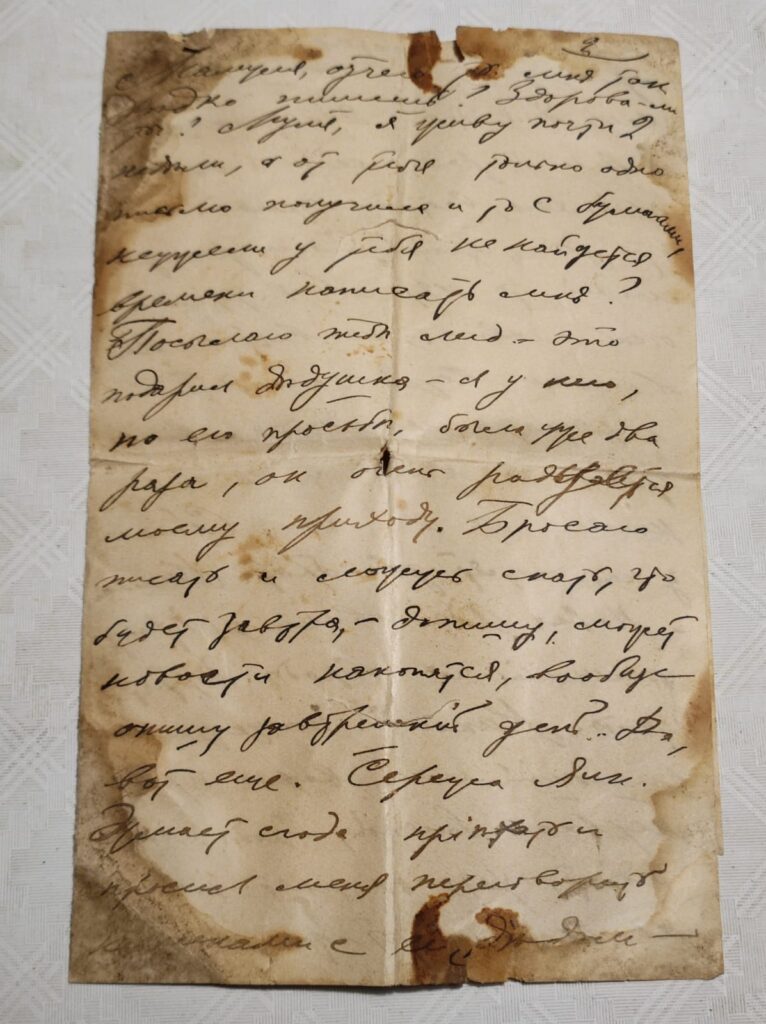 отчего ты мне так
редко пишешь? Здорова-ли
ты? Муля, я живу почти 2
недели, а от тебя только одно
письмо получила и то с бумагами,
неужели у тебя не найдется
времени написать мне?
Посылаю тебе мед - это
подарил дедушка - я у него,
по его просьбе, была уже два
раза, он очень радуется
моему приходу. Бросаю
писать и ложусь спать, что
будет завтра, - допишу, может
новости накопятся, вообще
опишу завтрешний день.. Да,
вот еще. Сережа Янк.
Думает сюда
просил меня переговорить
с ей „дядей -